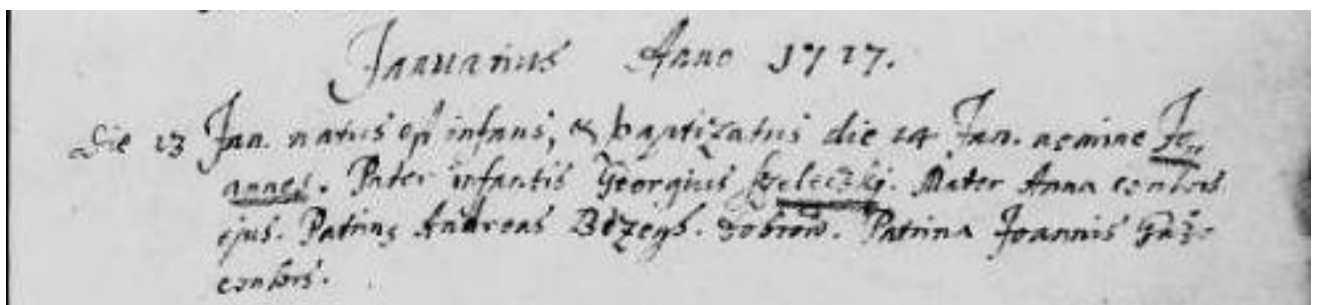 Januarius Anno 1727.
Die 13 Jan. natus est infans, & baptizatus die 14 Jan. nomine Jo-
annes. Pater infantis Georgius Szeleczkj. Mater Anna consors
ejus. Patrinus Andreas Bezegh. Patrina Joannis
consors.